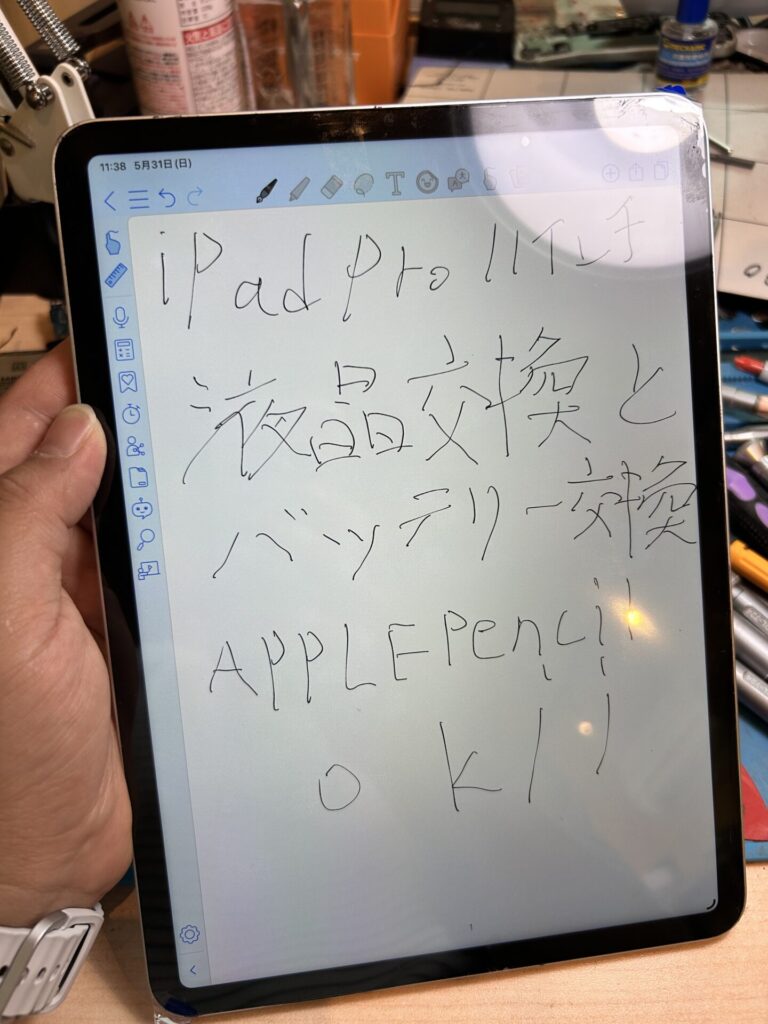 11:38 5月31日(日)
iPad Pro 11インチ
液晶交換と
バッテリー交換
APPLE Pencil
ok!!
1